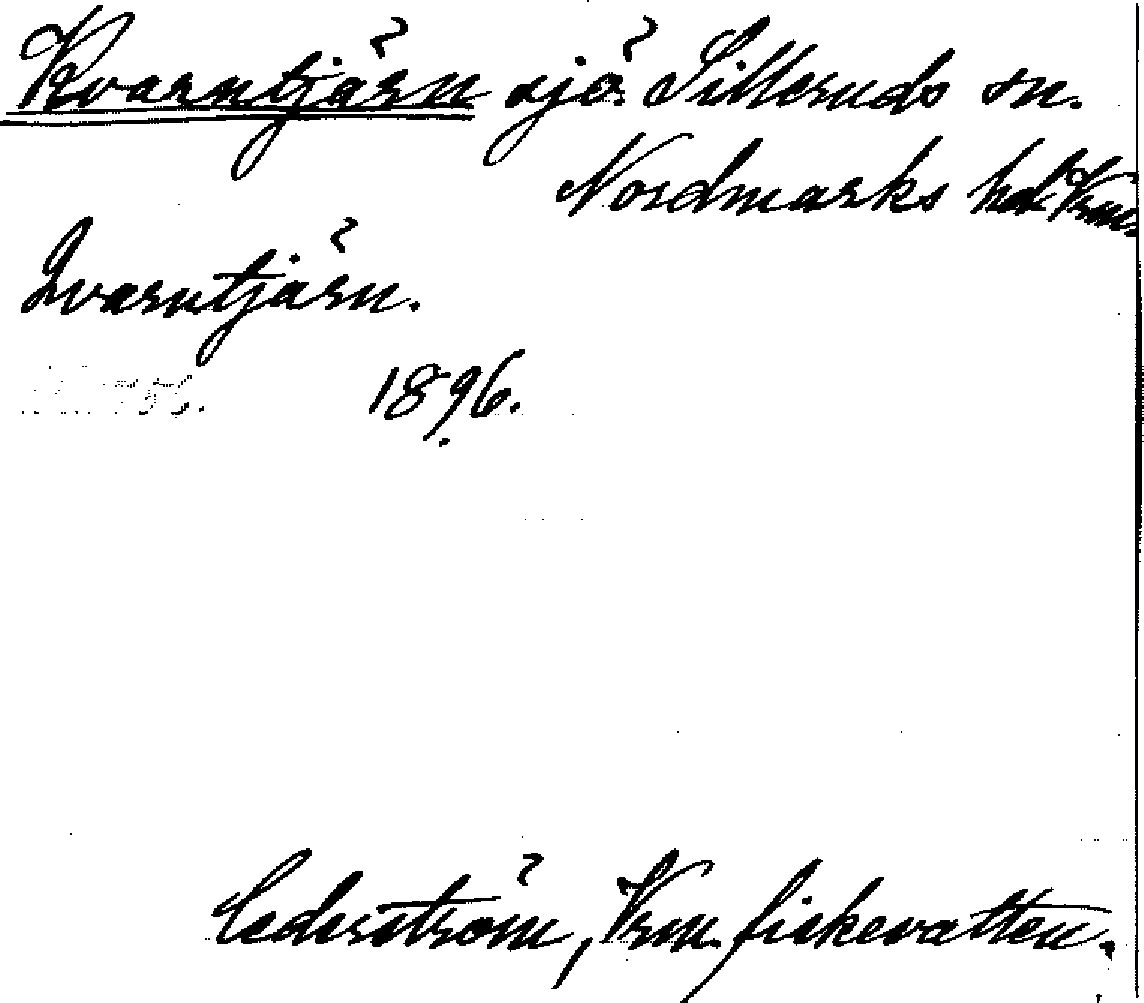 Kvarntjärn sjö Silleruds sn.
Nordmarks hd. Vrm.
Qvarntjärn.
1896.
Cederström, Vrm. fiskevatten.